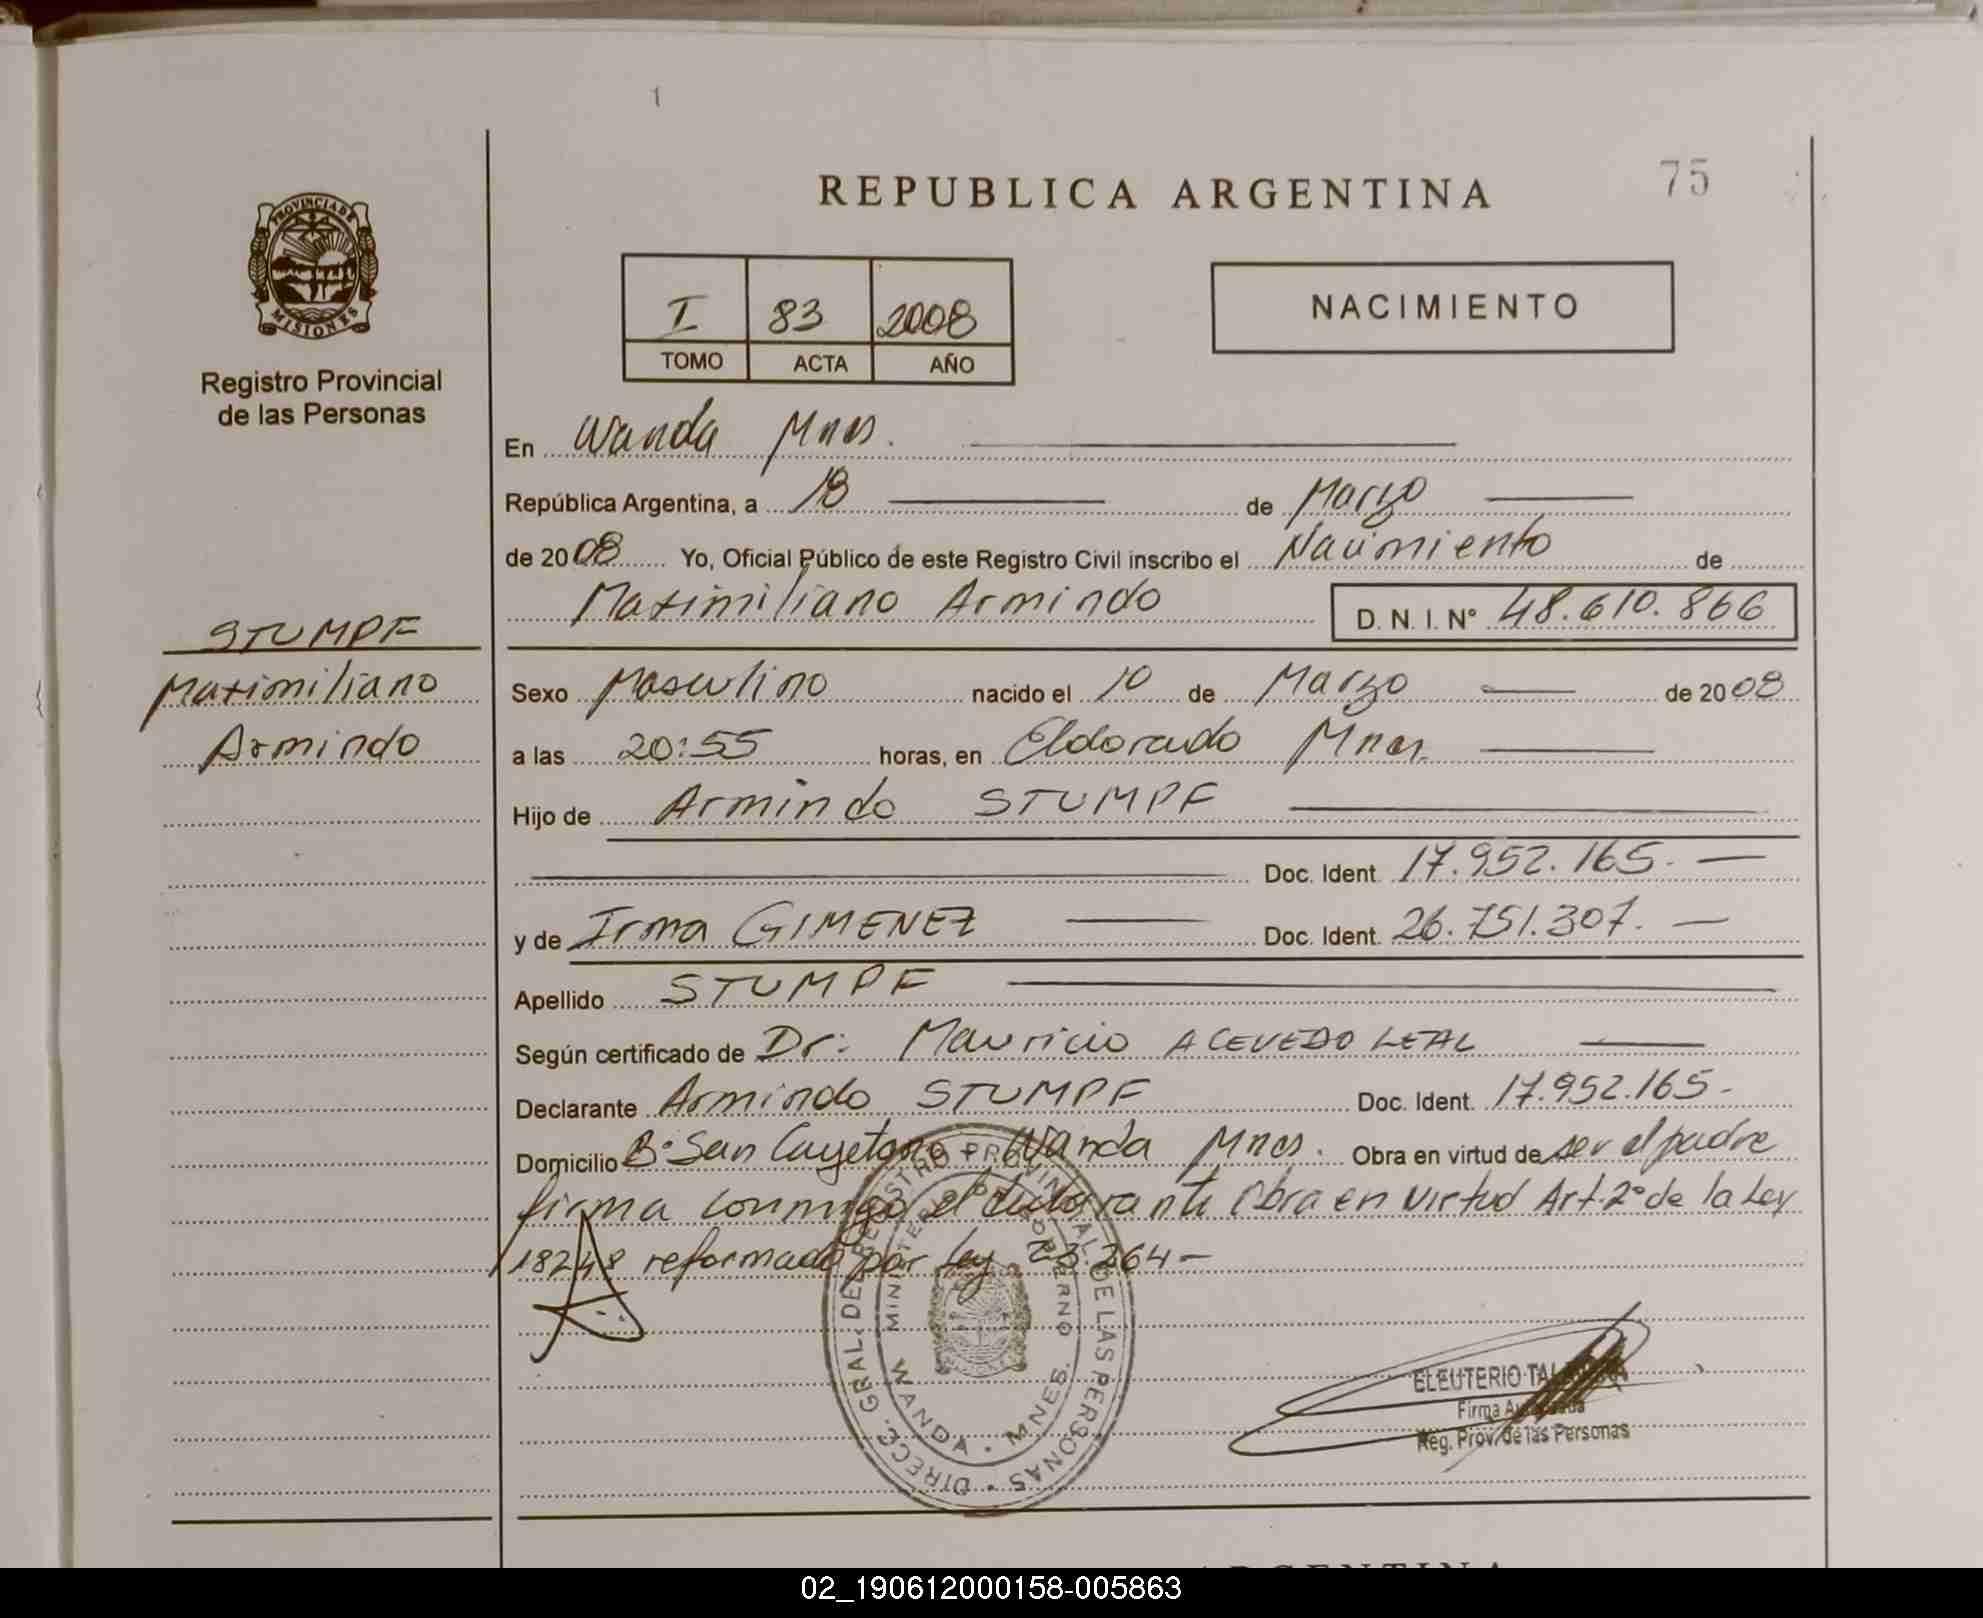 1
75
REPUBLICA ARGENTINA
PROVINCIA DE
MISIONES
Registro Provincial
de las Personas
I 83 2008
TOMO ACTA AÑO
NACIMIENTO
En Wanda Mnes.
República Argentina, a 18 de Marzo
de 2008 Yo, Oficial Público de este Registro Civil inscribo el Nacimiento de
Maximiliano Armindo D. N. I. Nº 48.610.866
STUMPF
Maximiliano
Armindo
Sexo Masculino nacido el 10 de Marzo de 2008
a las 20:55 horas, en Eldorado Mnes.
Hijo de Armindo STUMPF
Doc. Ident. 17.952.165.
y de Irma GIMENEZ Doc. Ident. 26.751.307.
Apellido STUMPF
Según certificado de Dr: Mauricio ACEVEDO LEAL
Declarante Armindo STUMPF Doc. Ident. 17.952.165-
Domicilio Bº San Cayetano - Wanda Mnes. Obra en virtud de ser el padre
firma conmigo el declarante Obra en virtud Art. 2º de la Ley
18248 reformado por Ley 23.264-
DIRECC. GRAL. DEL REGISTRO PROVINCIAL DE LAS PERSONAS
MINISTERIO DE GOBIERNO
WANDA - MNES.
ELEUTERIO
Firma Autorizada
Reg. Prov. de las Personas
ARGENTINA
02_190612000158-005863